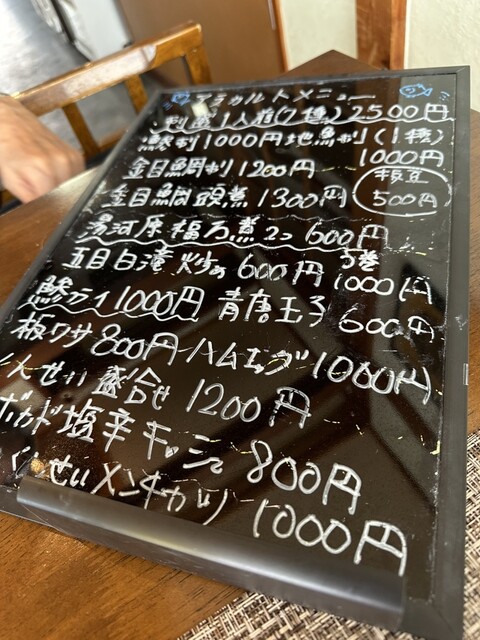 アラカルトメニュー
刺盛1人前(7種)2500円
鯵刺1000円地魚刺(1種)
金目鯛刺1200円 1000円
枝豆
500円
金目鯛頭煮1300円
湯河原福石煮2コ600円
五目白滝炒め600円 う巻
1000円
鯵フライ1000円 青唐玉子600円
板ワサ800円 ハムエッグ1000円
くんせい盛合せ1200円
ボカド塩辛キッシュ800円
くんせいメンチカツ1000円